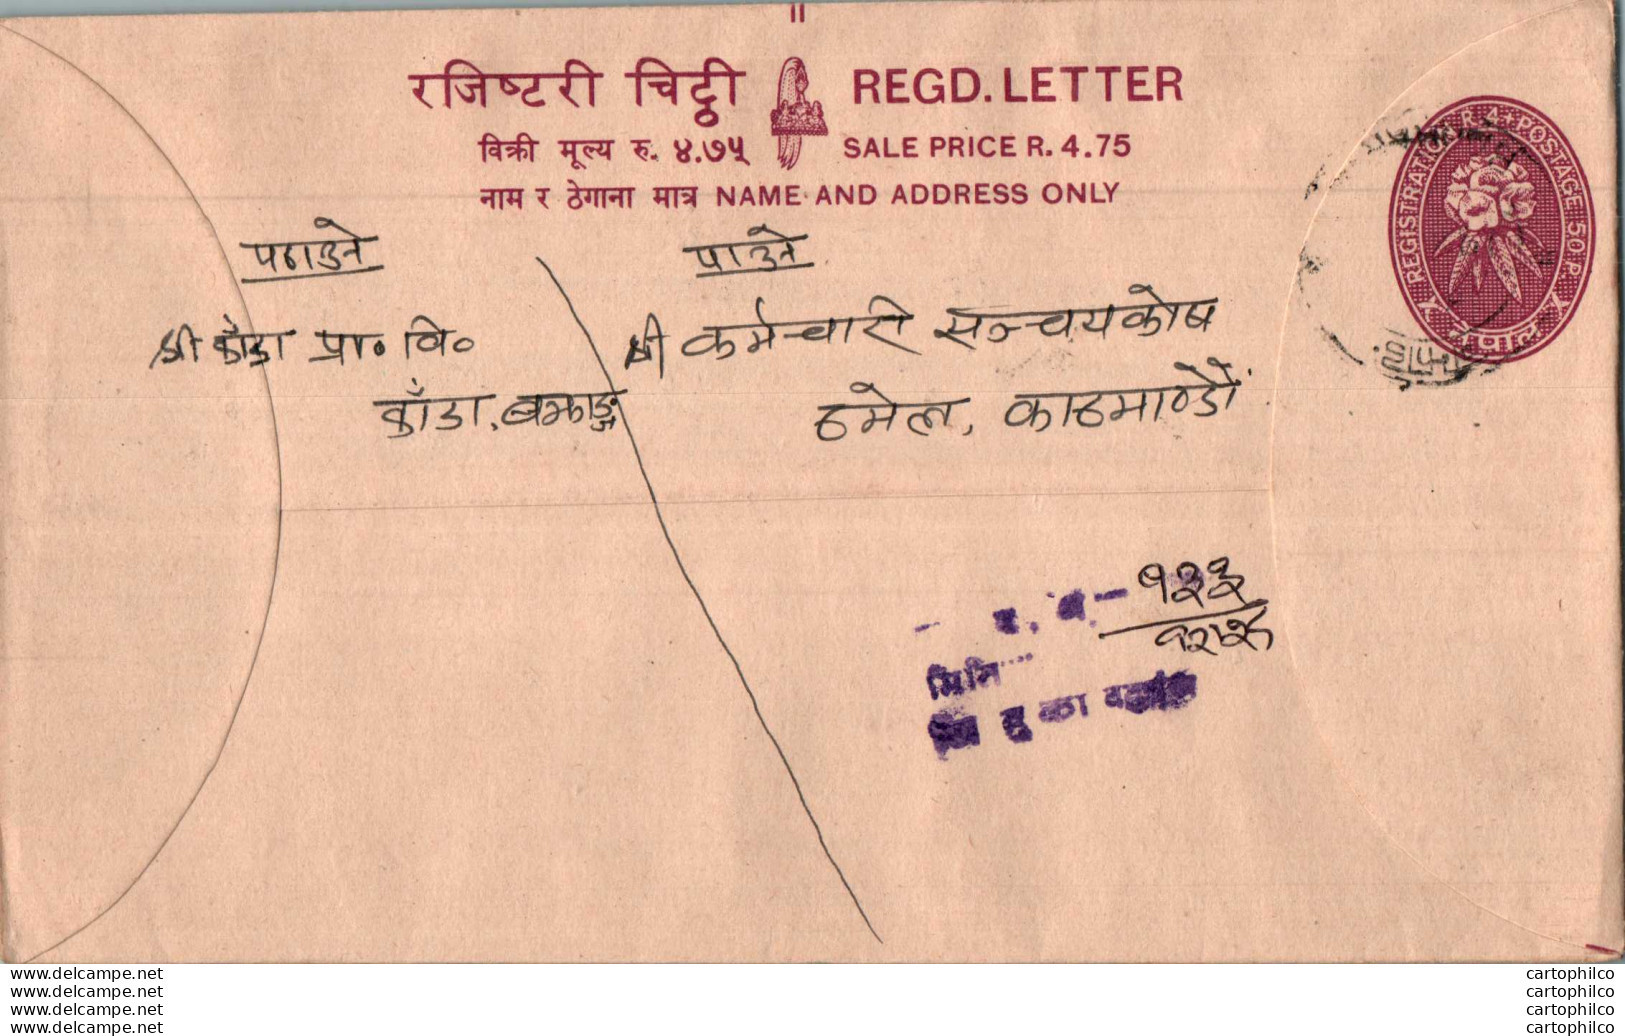 रजिष्टरी चिट्ठी REGD. LETTER
विक्री मूल्य रु. ४.७५ SALE PRICE R. 4.75
नाम र ठेगाना मात्र NAME AND ADDRESS ONLY
REGISTRATION R. 4 + POSTAGE 50 P.
नेपाल
पठाउने
श्री काँडा प्रा० वि०
काँडा, बझाङ्ग
पाउने
श्री कर्मचारी सञ्चयकोष
ठमेल, काठमाण्डौं
१२३
मिति
जि हु का बझाङ
www.delcampe.net
www.delcampe.net
www.delcampe.net
www.delcampe.net
cartophilco
cartophilco
cartophilco
cartophilco